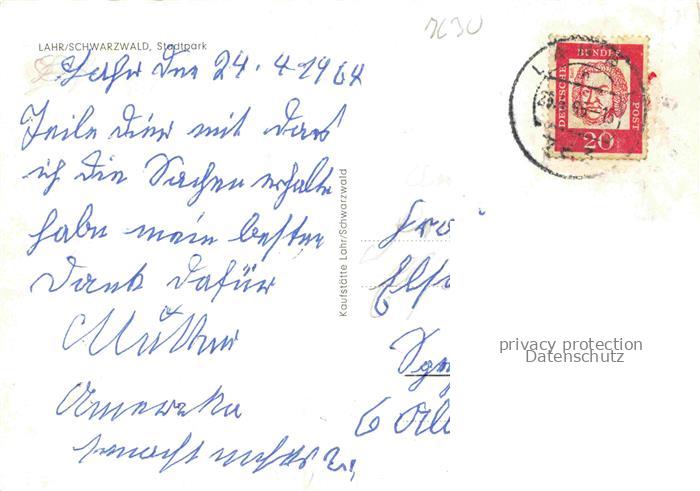 LAHR/SCHWARZWALD, Stadtpark
Lahr den 24.4.1964
Teile dier mit das
ich die Sachen erhalte
habe mein besten
Dank dafür
Mutter
macht nichts
Kaufstätte Lahr/Schwarzwald
DEUTSCHE BUNDES POST
20
privacy protection
Datenschutz